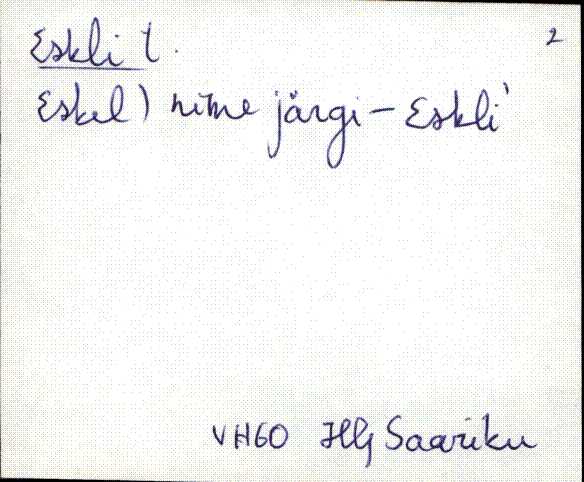 Eskli t. 2
Eskel) nime järgi - Eskli'
VH60 Hlj Saariku